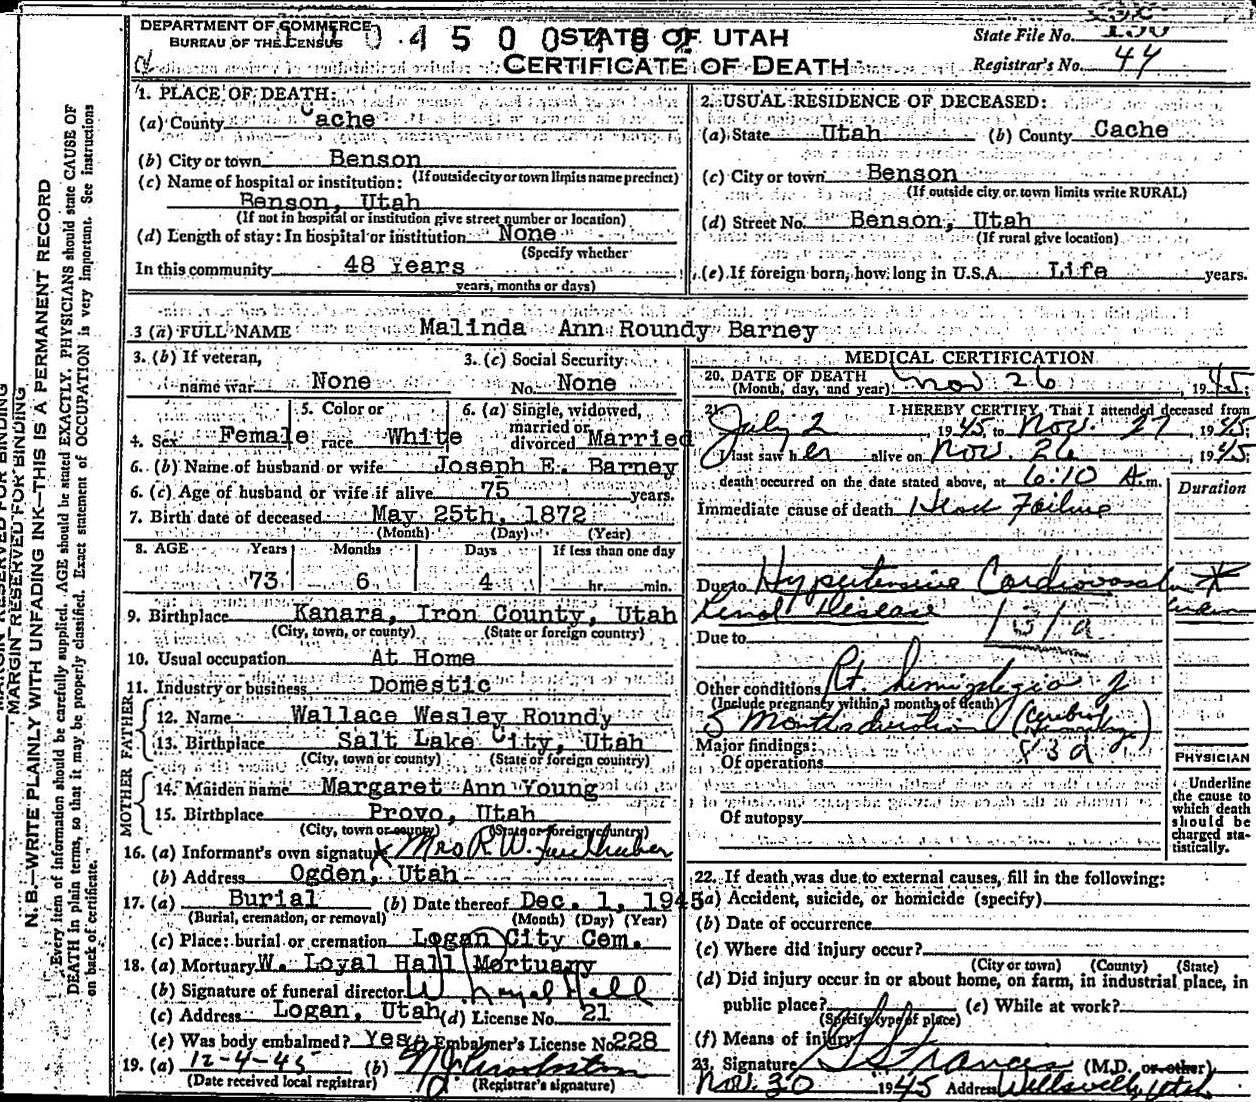 DEPARTMENT OF COMMERCE
BUREAU OF THE CENSUS
STATE OF UTAH
CERTIFICATE OF DEATH
State File No.
Registrar's No. 44
1. PLACE OF DEATH:
(a) County Cache
(b) City or town Benson
(If outside city or town limits name precinct)
(c) Name of hospital or institution:
Benson, Utah
(If not in hospital or institution give street number or location)
(d) Length of stay: In hospital or institution None
(Specify whether
In this community 48 Years
years, months or days)
2. USUAL RESIDENCE OF DECEASED:
(a) State Utah (b) County Cache
(c) City or town Benson
(If outside city or town limits write RURAL)
(d) Street No. Benson, Utah
(If rural give location)
(e) If foreign born, how long in U.S.A. Life years.
3 (a) FULL NAME Malinda Ann Roundy Barney
3. (b) If veteran, name war None
3. (c) Social Security No. None
4. Sex Female
5. Color or race White
6. (a) Single, widowed, married or divorced Married
6. (b) Name of husband or wife Joseph E. Barney
6. (c) Age of husband or wife if alive 75 years.
7. Birth date of deceased May 25th, 1872
(Month) (Day) (Year)
8. AGE Years Months Days If less than one day
73 6 4 hr. min.
9. Birthplace Kanara, Iron County, Utah
(City, town, or county) (State or foreign country)
10. Usual occupation At Home
11. Industry or business Domestic
FATHER
12. Name Wallace Wesley Roundy
13. Birthplace Salt Lake City, Utah
(City, town or county) (State or foreign country)
MOTHER
14. Maiden name Margaret Ann Young
15. Birthplace Provo, Utah
(City, town or county) (State or foreign country)
16. (a) Informant's own signature X Mrs R. W.
(b) Address Ogden, Utah
17. (a) Burial (b) Date thereof Dec. 1, 1945
(Burial, cremation, or removal) (Month) (Day) (Year)
(c) Place: burial or cremation Logan City Cem.
18. (a) Mortuary W. Loyal Hall Mortuary
(b) Signature of funeral director W Loyal Hall
(c) Address Logan, Utah (d) License No. 21
(e) Was body embalmed? Yes Embalmer's License No. 228
19. (a) 12-4-45 (b)
(Date received local registrar) (Registrar's signature)
MEDICAL CERTIFICATION
20. DATE OF DEATH Nov 26, 1945.
(Month, day, and year)
21. I HEREBY CERTIFY, That I attended deceased from
July 2, 1945 to Nov. 27, 1945;
I last saw her alive on Nov. 26, 1945;
death occurred on the date stated above, at 6:10 A.m.
Duration
Immediate cause of death Heart Failure
Due to Hypertensive Cardiovascular
Renal Disease
131a
Due to
Other conditions Rt. hemiplegia of
(Include pregnancy within 3 months of death)
5 Months duration (Cerebral
83a
Major findings:
Of operations
Of autopsy
PHYSICIAN
Underline the cause to which death should be charged statistically.
22. If death was due to external causes, fill in the following:
(a) Accident, suicide, or homicide (specify)
(b) Date of occurrence
(c) Where did injury occur?
(City or town) (County) (State)
(d) Did injury occur in or about home, on farm, in industrial place, in
public place? (e) While at work?
(Specify type of place)
(f) Means of injury
23. Signature Francis (M.D. or other)
Nov. 30 1945 Address Wellsville, Utah
MARGIN RESERVED FOR BINDING
N. B.—WRITE PLAINLY WITH UNFADING INK—THIS IS A PERMANENT RECORD
Every item of information should be carefully supplied. AGE should be stated EXACTLY. PHYSICIANS should state CAUSE OF
DEATH in plain terms, so that it may be properly classified. Exact statement of OCCUPATION is very important. See instructions
on back of certificate.